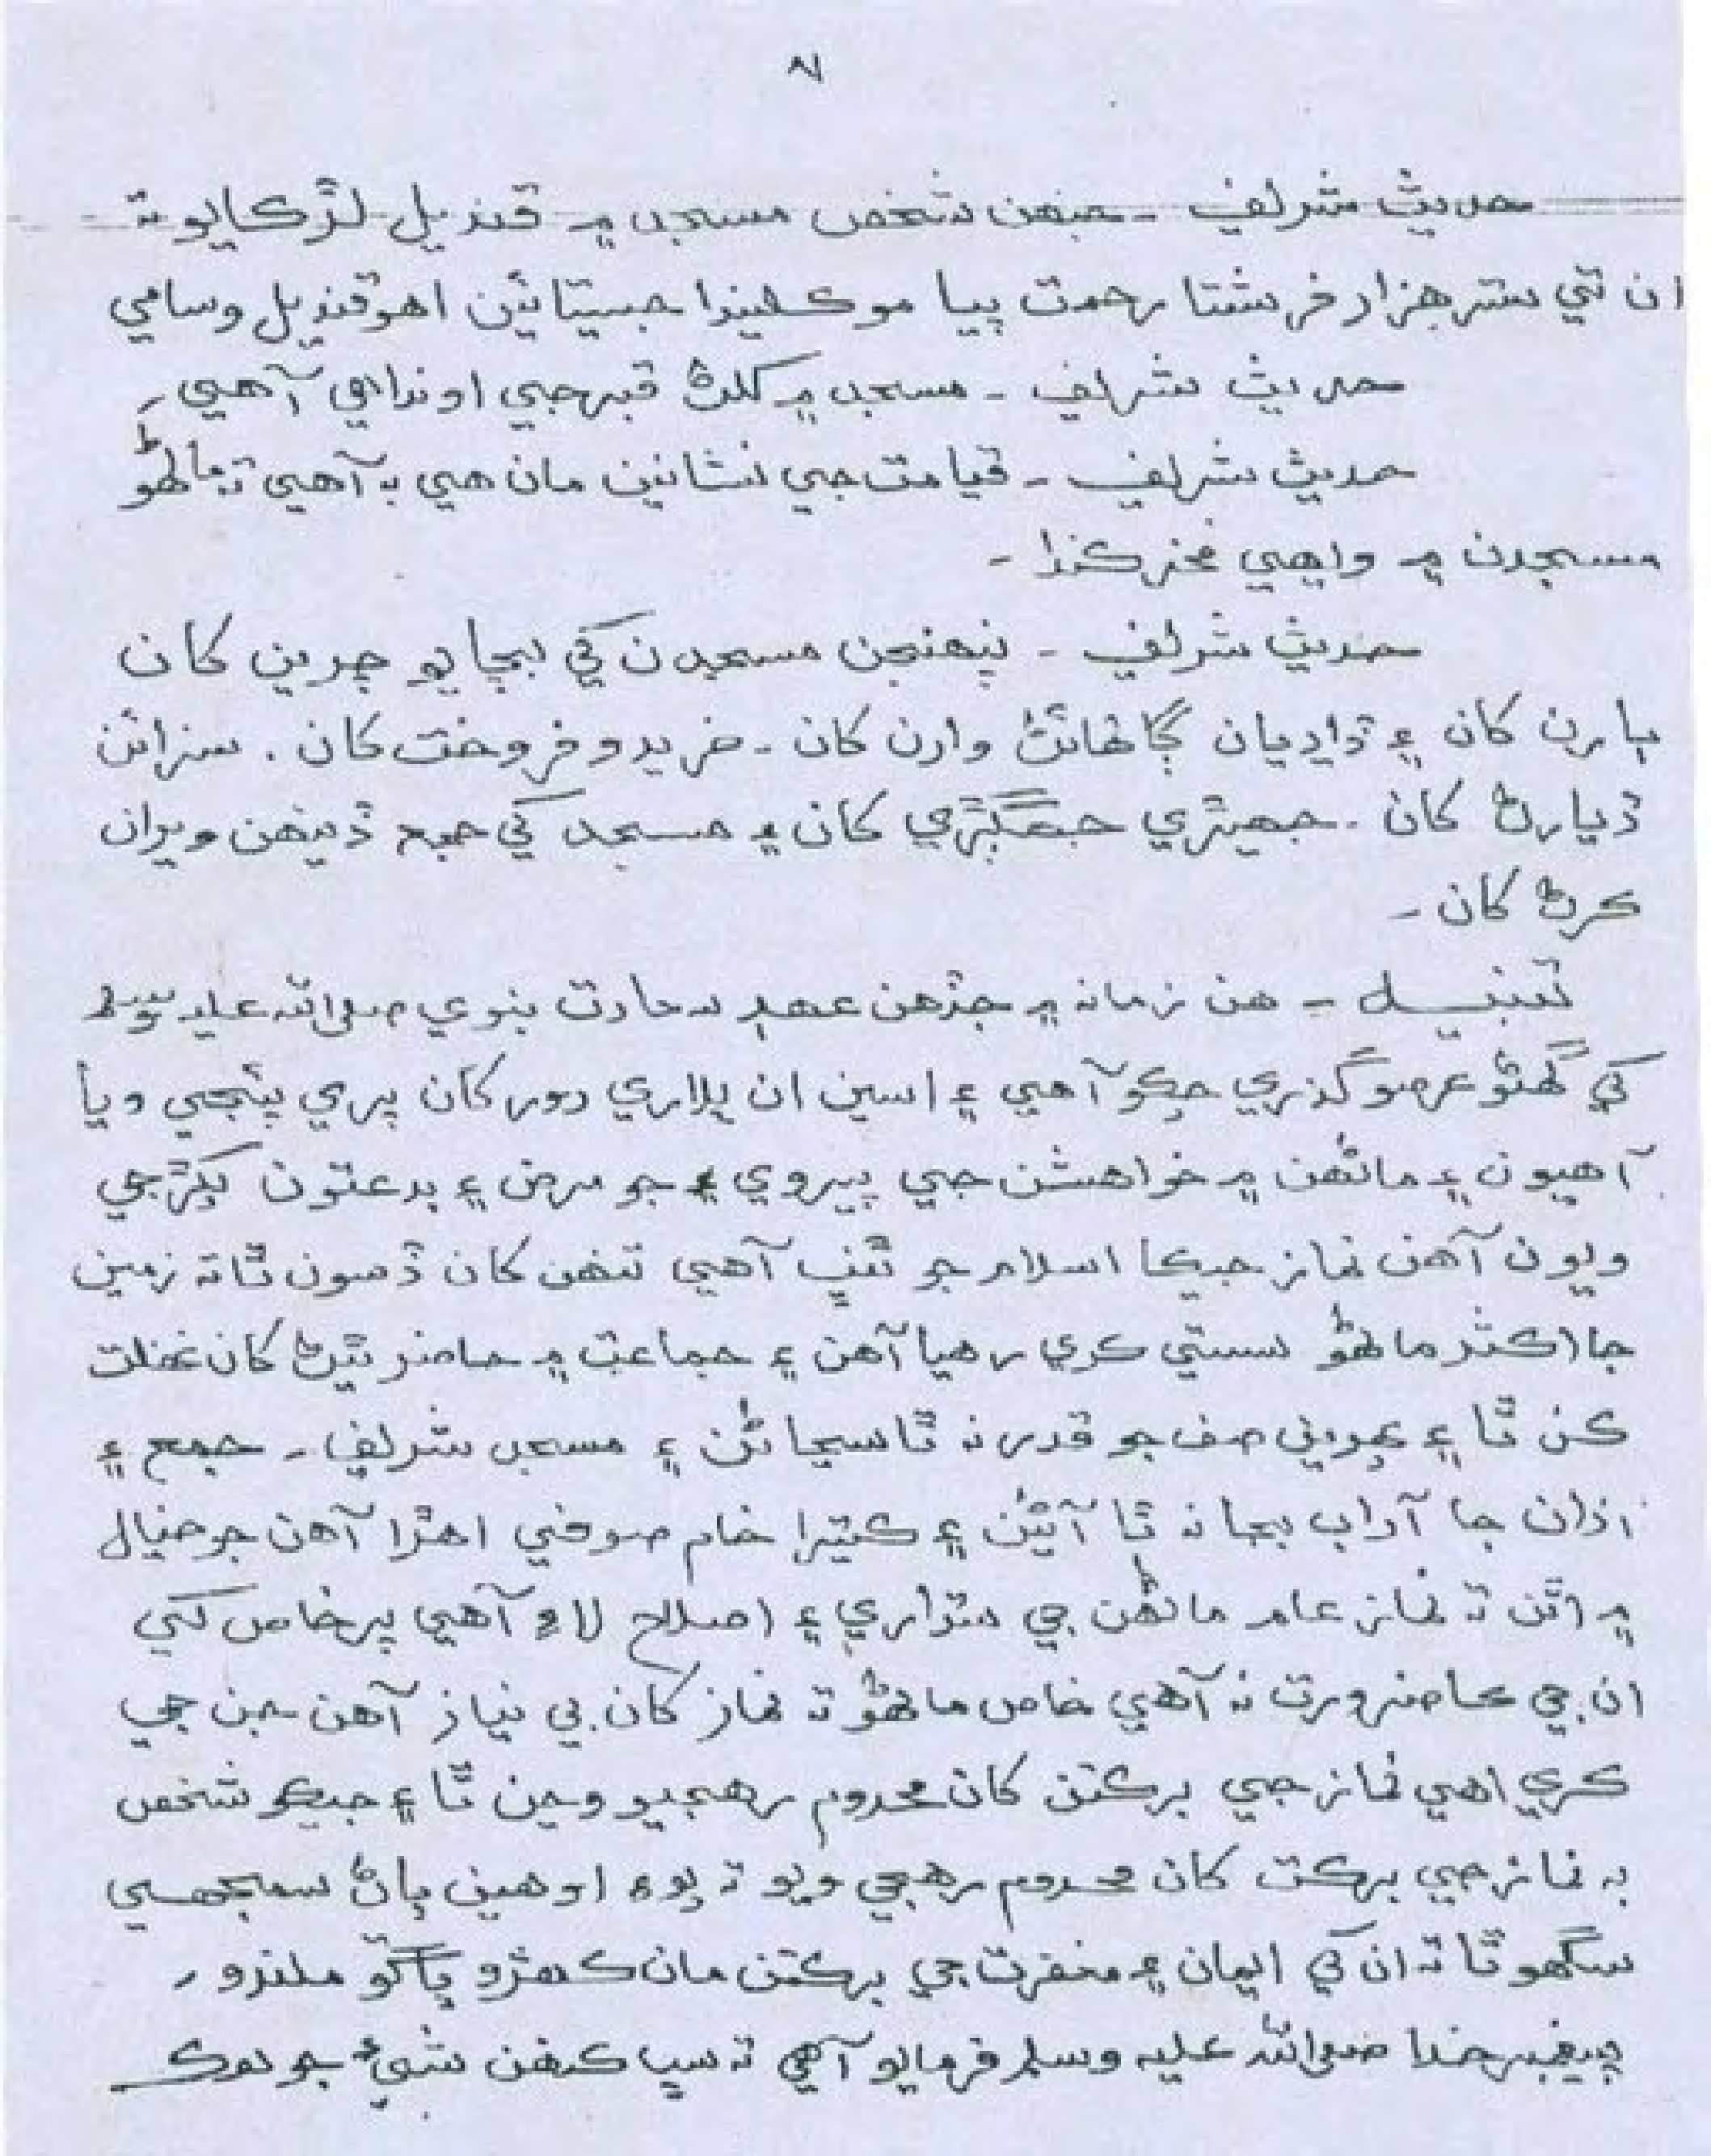 ۸
حديث شريف - جنهن شخص مسجد ۾ قنديل لڙڪايو ته
ان تي ستر هزار فرشتا رحمت پيا موڪليندا جيستائين اهو قنديل وسامي
حديث شريف - مسجد ۾ کلڻ قبر جي اونداهي آهي -
حديث شريف - قيامت جي نشانين مان هي به آهي ته ماڻهو
مسجدن ۾ ويهي فخر ڪندا -
حديث شريف - پنهنجن مسجدن کي بچايو چرين کان
ٻارن کان ۽ ڏاڍيان ڳالهائڻ وارن کان - خريد و فروخت کان . سزائن
ڏيارڻ کان - جهيڙي جهڳڙي کان ۽ مسجد کي جمع ڏينهن ويران
ڪرڻ کان -
تنبيــه - هن زمانه ۾ جڏهن عهد سعادت نبوي صلي الله عليه وسلم
کي گهڻو عرصو گذري چڪو آهي ۽ اسين ان ڀلاري دور کان پري پئجي ويا
آهيون ۽ ماڻهن ۾ خواهشن جي پيروي جو مرض ۽ بدعتون پکڙجي
ويون آهن نماز جيڪا اسلام جو ٿنڀ آهي تنهن کان ڏسون ٿا ته زمين
جا اڪثر ماڻهو سستي ڪري رهيا آهن ۽ جماعت ۾ حاضر ٿيڻ کان غفلت
ڪن ٿا ۽ پهرئين صف جو قدر نه ٿا سڃاڻن ۽ مسجد شريف - جمع ۽
اذان جا آداب بجا نه ٿا آڻين ۽ ڪيترا خام صوفي اهڙا آهن جو خيال
۾ اٿن ته نماز عام ماڻهن جي سڌاري ۽ اصلاح لاءِ آهي پر خاص کي
ان جي ضرورت نه آهي خاص ماڻهو ته نماز کان بي نياز آهن جن جي
ڪري اهي نماز جي برڪتن کان محروم رهجيو وڃن ٿا ۽ جيڪو شخص
به نماز جي برڪت کان محروم رهجي ويو ته پوءِ اوهين پاڻ سمجهي
سگهو ٿا ته ان کي ايمان ۽ مغفرت جي برڪتن مان ڪهڙو ڀاڱو ملندو -
پيغمبر خدا صلي الله عليه وسلم فرمايو آهي ته سڀ ڪنهن شيءِ جو هڪ